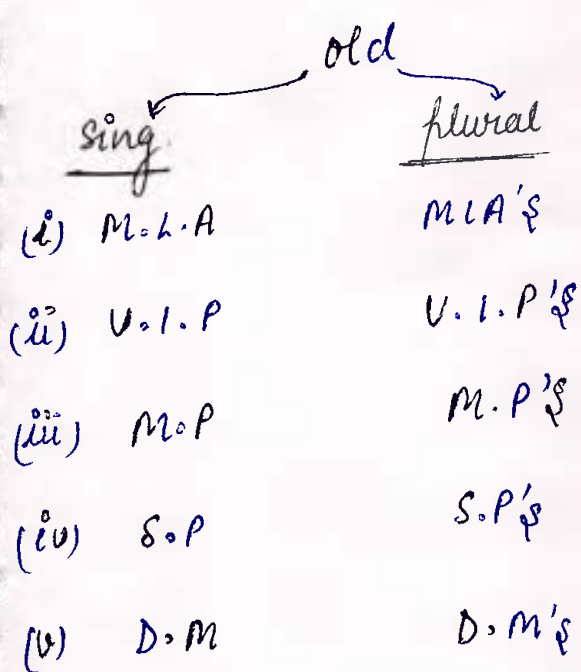 old
sing. plural
(i) M.L.A MLA's
(ii) V.I.P V.I.P's
(iii) M.P M.P's
(iv) S.P S.P's
(v) D.M D.M's